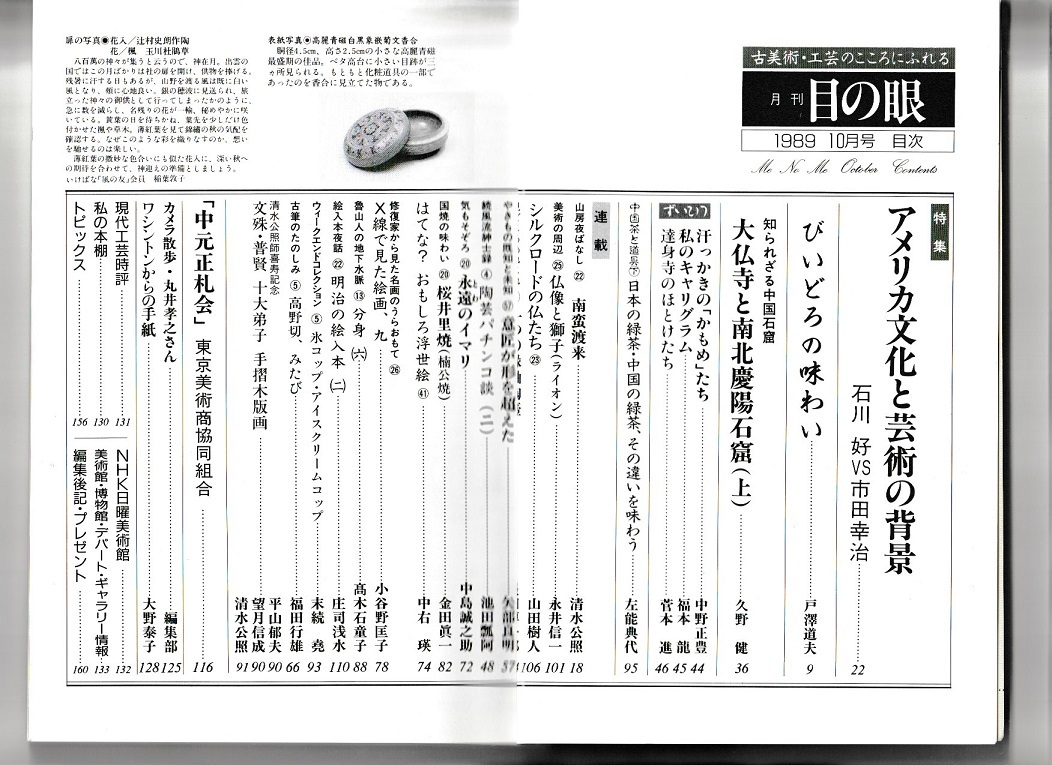 古美術・工芸のこころにふれる
月刊 目の眼
1989 10月号 目次
Me No Me October Contents
表紙写真◉高麗青磁白黒象嵌菊文香合
胴径4.5cm、高さ2.5cmの小さな高麗青磁
最盛期の佳品。ベタ高台に小さい目跡が三
ヶ所見られる。もともと化粧道具の一部で
あったのを香合に見立てた物である。
扉の写真◉花入／辻村史朗作陶
花／楓 玉川杜鵑草
八百万の神々が集うと云うので、神在月。出雲の
国ではこの月ばかりは社の扉を開け、供物を捧げる。
残暑に汗する日もあるが、山野を渡る風は既に白い
風となり、頬に心地良い。銀の穂波に見送られ、旅
立った神々の御供として行ってしまったかのように、
急に数を減らし、名残りの花が一輪、秘めやかに咲
いている。黄葉の日を待ちかね、葉先を少しだけ色
付かせた楓や草木。薄紅葉を見て錦繡の秋の気配を
確認する。なぜこのような彩を織りなすのか、想い
を馳せるのは楽しい。
薄紅葉の微妙な色合いにも似た花入に、深い秋へ
の期待を合わせて、神迎えの準備としましょう。
いけばな「風の友」会員 稲葉敦子
特集
アメリカ文化と芸術の背景
石川 好VS市田幸治 22
びいどろの味わい 戸澤道夫 9
知られざる中国石窟
大仏寺と南北慶陽石窟（上） 久野 健 36
ずいひつ
汗っかきの「かもめ」たち 中野正豊 44
私のキャリグラム 福本 龍 45
達身寺のほとけたち 菅本 進 46
中国茶と道具⑦ 日本の緑茶・中国の緑茶、その違いを味わう 左能典代 95
連載
山房夜ばなし㉒ 南蛮渡来 清水公照 18
美術の周辺㉕ 仏像と獅子（ライオン） 永井信一 101
シルクロードの仏たち㉓ 山田樹人 106
やきもの既知と未知�57 意匠が形を超えた 矢部良明 57
続風流紳士録④ 陶芸パチンコ談（二） 池田瓢阿 48
気もそぞろ⑳ 永遠のイマリ 中島誠之助 72
国焼の味わい⑳ 桜井里焼（楠公焼） 金田眞一 82
はてな？ おもしろ浮世絵㊶ 中右 瑛 74
修復家から見た名画のうらおもて㉖
X線で見た絵画、九 小谷野匡子 78
魯山人の地下水脈⑬ 分身（六） 髙木石童子 88
絵入本夜話㉒ 明治の絵入本（二） 庄司浅水 110
ウィークエンドコレクション⑤ 氷コップ・アイスクリームコップ 末続 堯 93
古筆のたのしみ⑤ 高野切、みたび 福田行雄 66
清水公照師喜寿記念
文殊・普賢 十大弟子 手摺木版画 平山郁夫 90
望月信成 90
清水公照 91
「中元正札会」 東京美術商協同組合 116
カメラ散歩・丸井孝之さん 編集部 125
ワシントンからの手紙 大野泰子 128
現代工芸時評 131
私の本棚 130
トピックス 156
NHK日曜美術館 132
美術館・博物館・デパート・ギャラリー情報 133
編集後記・プレゼント 160